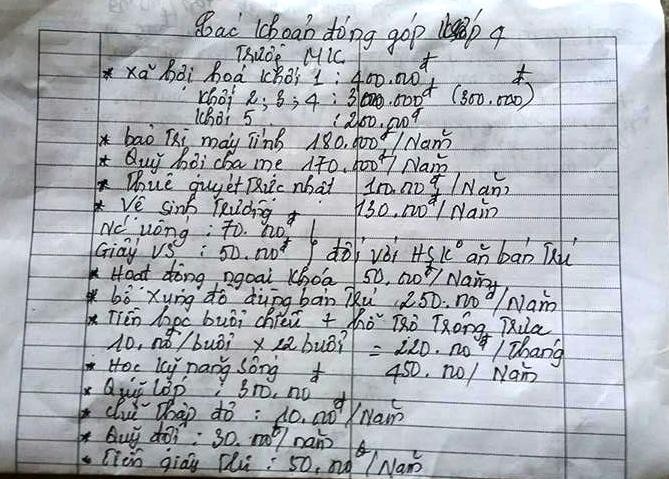 Các khoản đóng góp lớp 4
Trường MK
* xã hội hoá khối 1 : 400.000đ
Khối 2; 3; 4 : 300.000đ (300.000)đ
Khối 5 : 200.000đ
* bảo trì máy tính 180.000đ/Năm
* Quỹ hội cha mẹ 170.000đ/Năm
* Thuê quyét trực nhật 100.000đ/Năm
* Vệ sinh trường 130.000đ/Năm
Nc uống : 70.000đ
Giấy VS : 50.000đ } đối với HS K° ăn bán trú
* Hoạt động ngoại khóa 50.000đ/Năm
* bổ xung đồ dùng bán trú 250.000đ/Năm
* Tiền học buổi chiều + hỗ trợ trông trưa
10.000đ/buổi x 22 buổi = 220.000đ/tháng
* Học kỹ năng sống 450.000/Năm
* Quỹ lớp : 300.000đ
* chữ thập đỏ : 10.000đ/Năm
* Quỹ đội : 30.000đ/năm
* Tiền giấy thi : 50.000đ/Năm